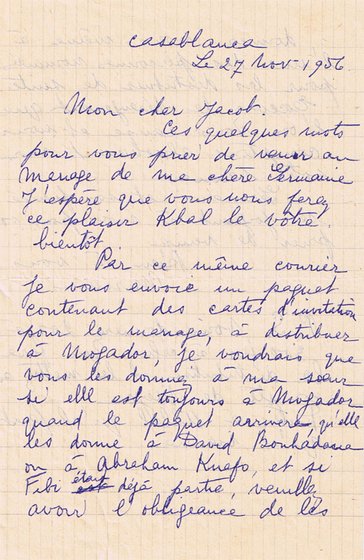 Casablanca
Le 27 Nov 1956
Mon cher Jacob.
Ces quelques mots
pour vous prier de venir au
mariage de ma chère Germaine
J'espère que vous nous ferez
ce plaisir Kbal le vôtre
bientôt.
Par ce même courrier
je vous envoie un paquet
contenant des cartes d'invitation
pour le mariage, à distribuer
à Mogador, je voudrais que
vous les donniez à ma sœur
si elle est toujours à Mogador
quand le paquet arrivera, qu'elle
les donne à David Bouhadana
ou à Abraham Knafo, et si
Fibi était déjà partie, veuillez
avoir l'obligeance de les